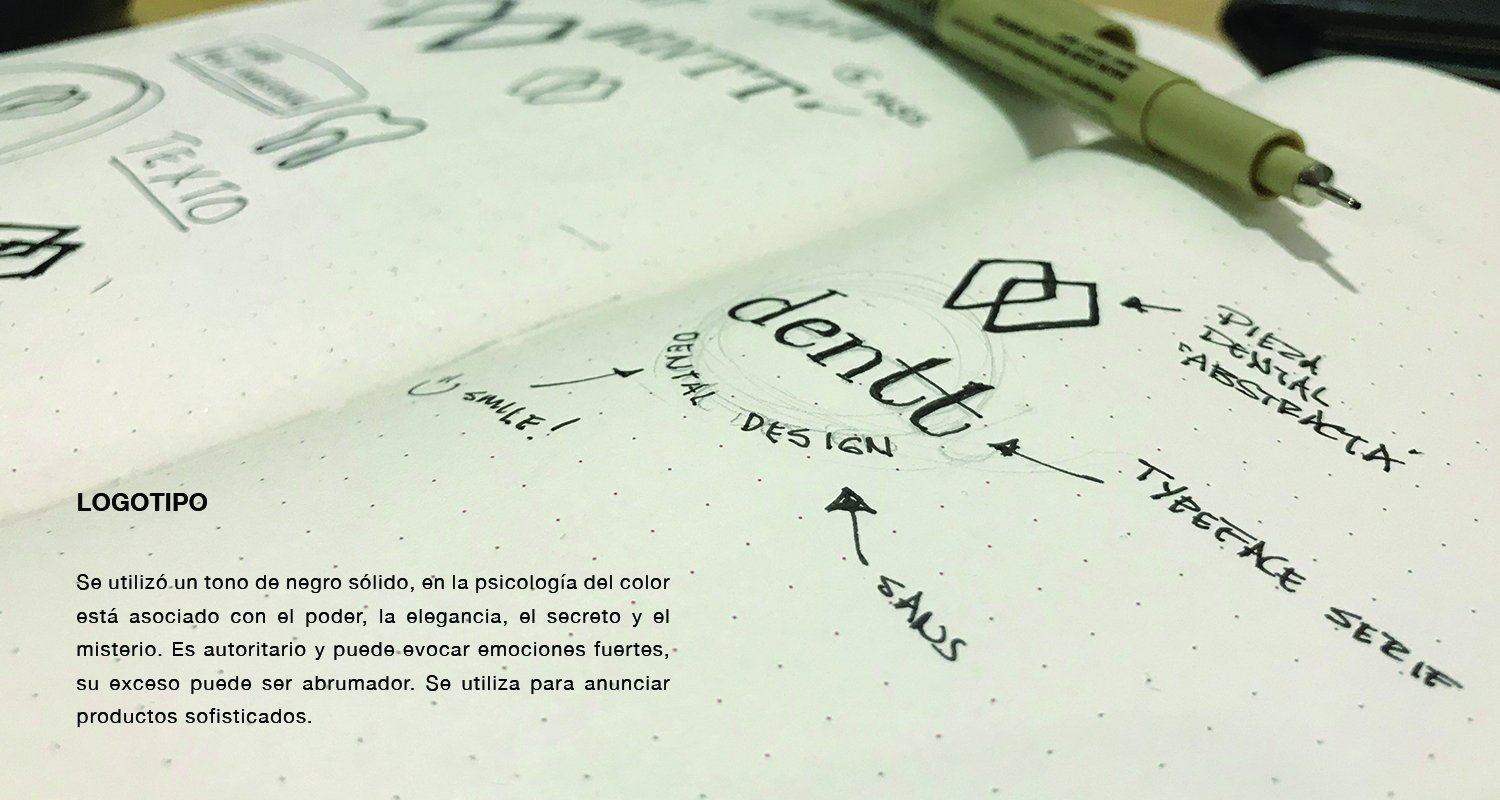 DENTT
6 
TEXTO
dentt
DENTAL DESIGN
SMILE!
PIEZA
DENTAL
"ABSTRACTA"
TYPEFACE SERIF
SANS
LOGOTIPO
Se utilizó un tono de negro sólido, en la psicología del color
está asociado con el poder, la elegancia, el secreto y el
misterio. Es autoritario y puede evocar emociones fuertes,
su exceso puede ser abrumador. Se utiliza para anunciar
productos sofisticados.